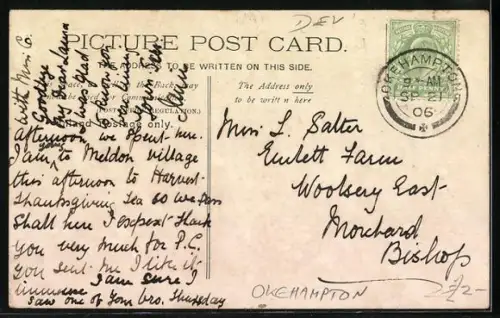 DEV
PICTURE POST CARD.
THE ADDRESS TO BE WRITTEN ON THIS SIDE.
The Address only
to be written here
OKEHAMPTON
AM
SP 21
06
with Mrs C.
Goodbye
my dear Laura
was glad
to know you
are living
Annie
afternoon we spent here.
I am going to Meldon village
this afternoon to Harvest
Thanksgiving Tea so we pass
Shall here I expect Thank
you very much for P.C.
you sent me I like it
immense I am sure I
saw one of your bro. Thursday
Miss L. Salter
Emlett Farm
Woolsery East
Morchard
Bishop
OKEHAMPTON